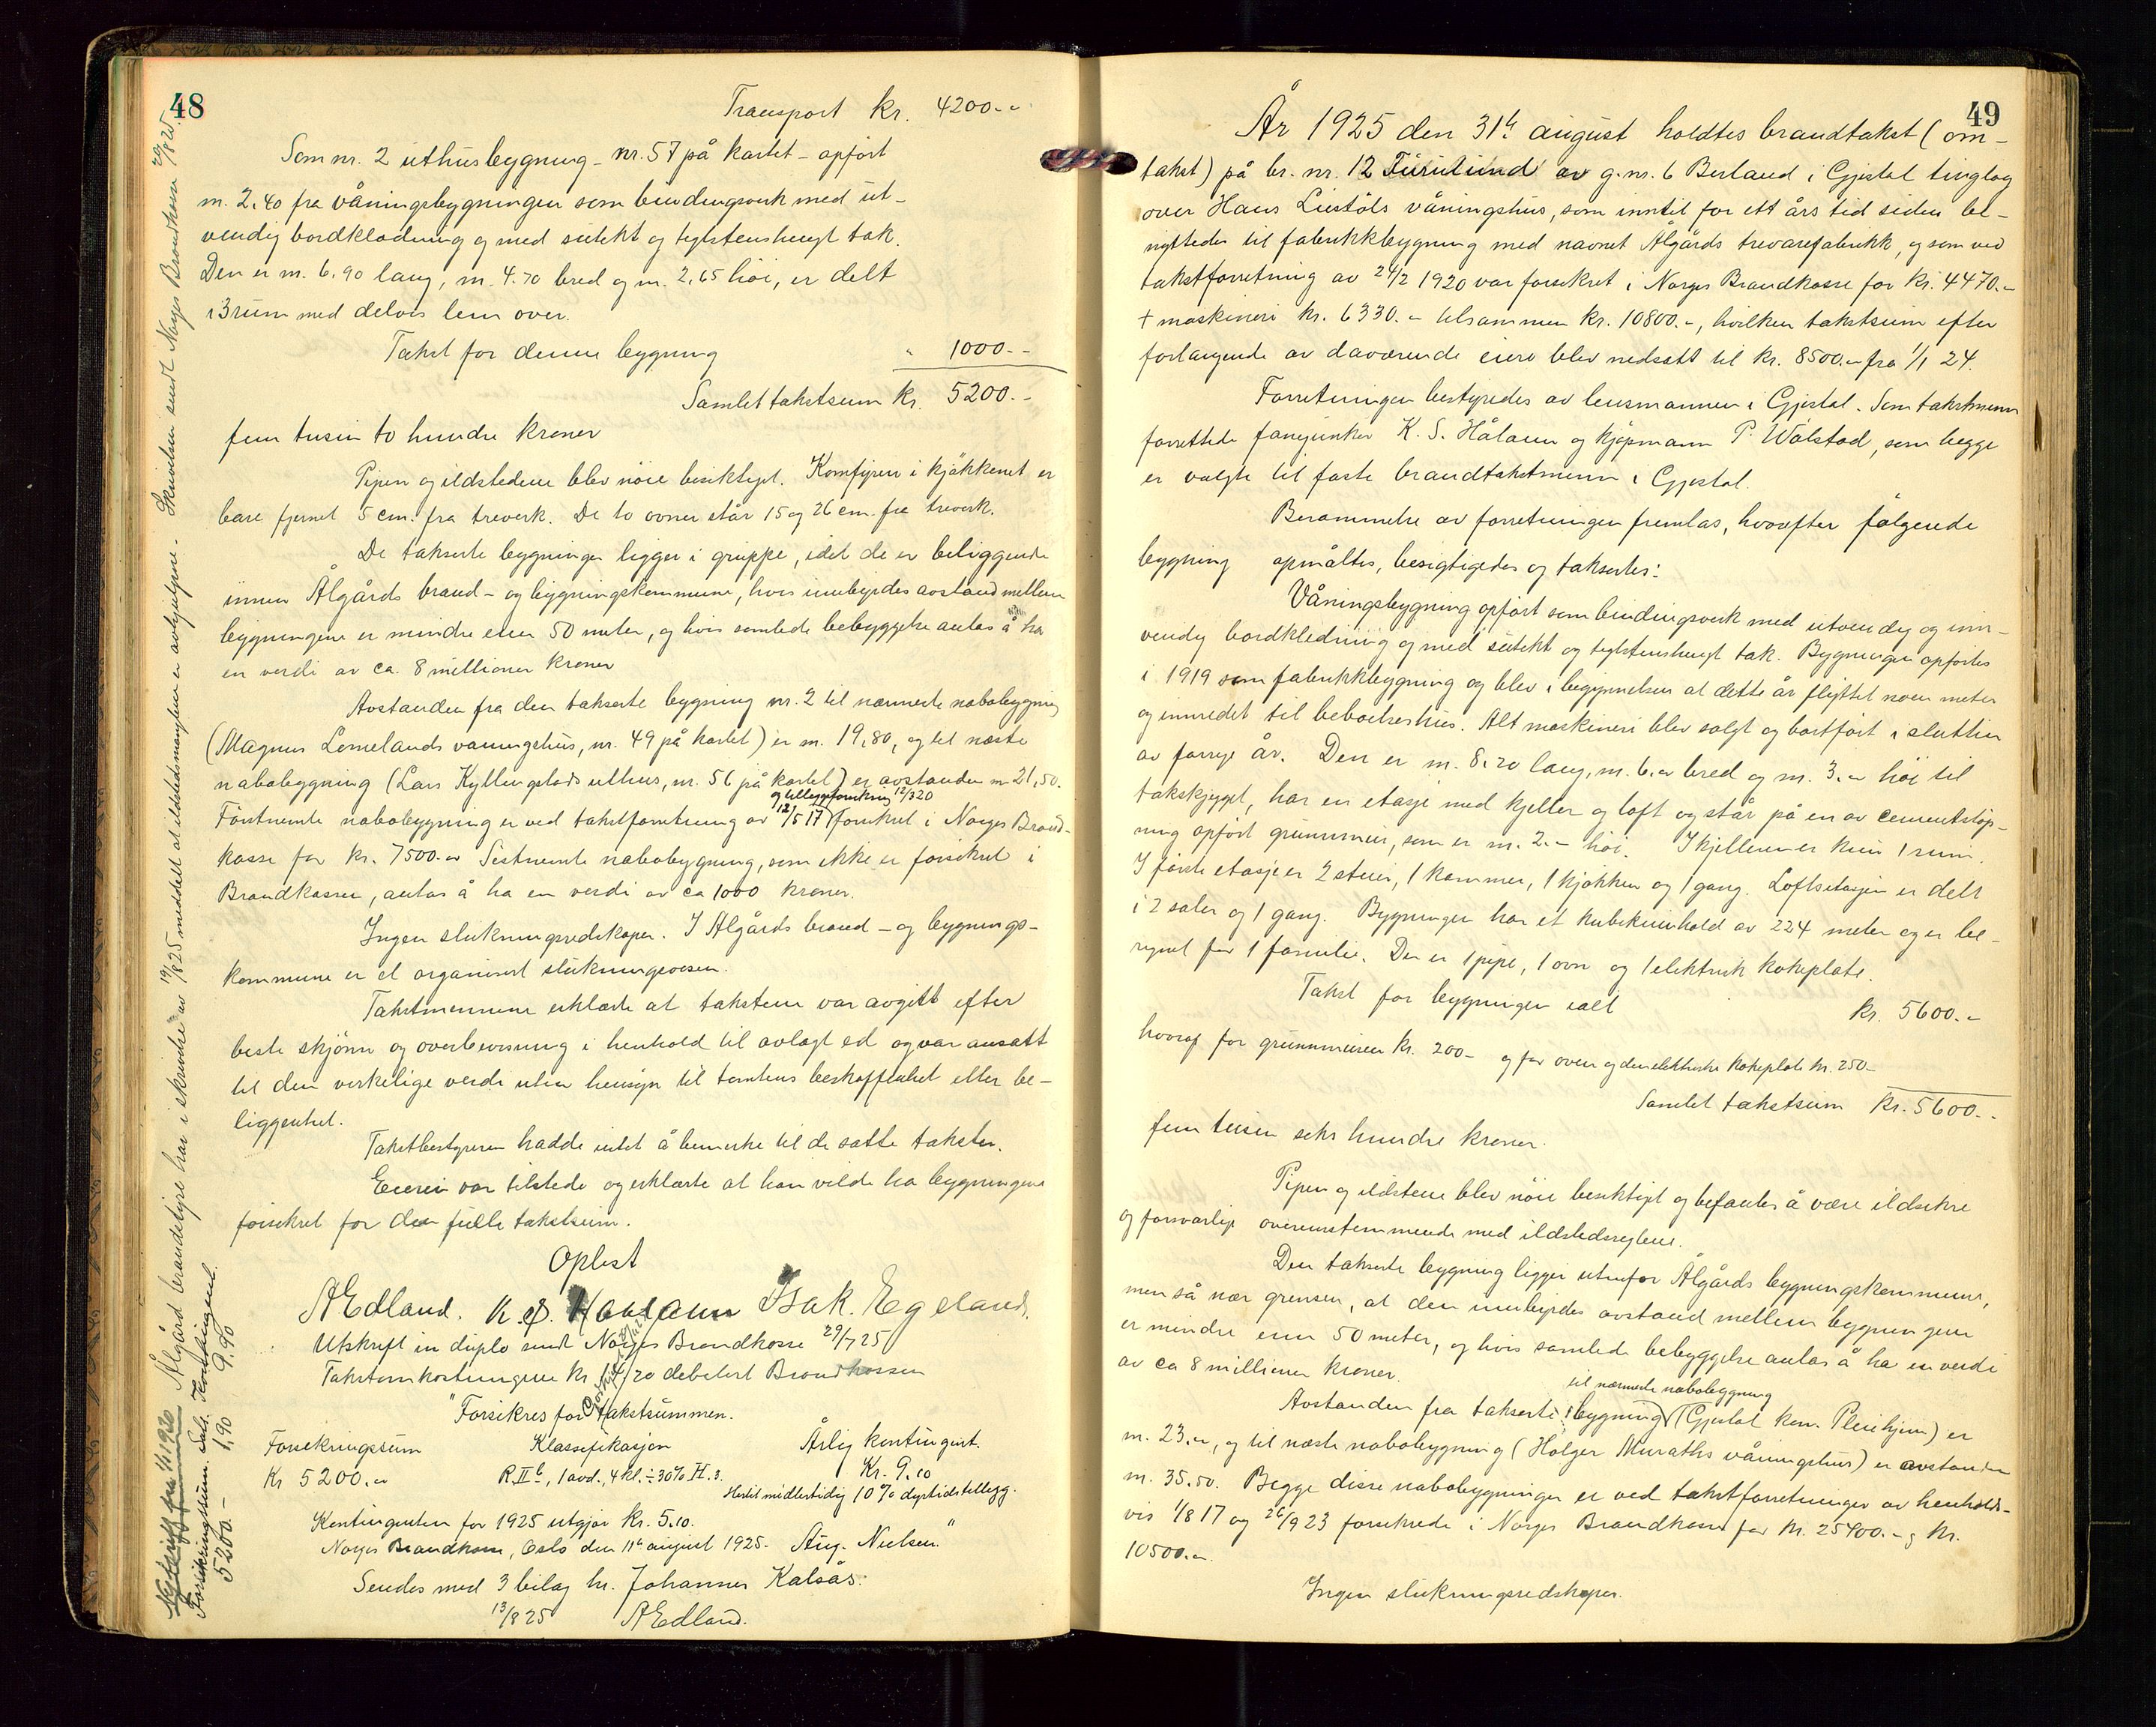 48
Transport kr. 4200.-
Som nr. 2 uthusbygning - nr. 57 på kartet - opført
m. 2,40 fra våningsbygningen som bindingsverk med ut-
vendig bordklædning og med sutekt og teglstenshengt tak.
Den er m. 6,90 lang, m. 4.70 bred og m. 2,65 høi, er delt
i 3 rum med delvis lem over.
Takst for denne bygning " 1000.-
Samlet takstsum kr. 5200.-
fem tusin to hundre kroner
Pipen og ildstedene blev nöie besiktiget. Komfyren i kjökkenet er
bare fjernet 5 cm. fra treverk. De to ovner står 15 og 26 cm. fra treverk.
De takserte bygninger ligger i gruppe, idet de er beliggende
innen Ålgårds brand- og bygningskommune, hvis innbyrdes avstand mellem
bygningene er mindre enn 50 meter, og hvis samlede bebyggelse antas å ha
en verdi av ca. 8 millioner kroner
Avstanden fra den takserte bygning nr. 2 til nærmeste nabobygning
(Magnus Lomelands våningshus, nr. 49 på kartet) er m. 19,80, og til næste
nabobygning (Lars Kyllingstads uthus, nr. 56 på kartet) er avstanden m 21,50.
og tilleggsforsikring 12/3 20
Förstnevnte nabobygning er ved takstforretning av 12/5 17 forsikret i Norges Brand-
kasse for kr. 7500.- Sistnevnte nabobygning, som ikke er forsikret i
Brandkassen, antas å ha en verdi av ca 1000 kroner.
Ingen slukningsredskaper. I Ålgårds brand- og bygnings-
kommune er et organisert slukningsvesen.
Takstmennene erklærte at takstene var avgitt efter
beste skjönn og overbevisning i henhold til avlagt ed og var ansatt
til den virkelige verdi uten hensyn til tomtens beskaffenhet eller be-
liggenhet.
Takstbestyreren hadde intet å bemerke til de satte takster.
Eieren var tilstede og erklærte at han vilde ha bygningene
forsikret for den fulle takstsum.
Oplest
A Edland. K. S. Haalann Isak. Egeland.
Utskrift in duplo sendt Norges Brandkasse 29/7 25
Takstomkostningene kr 14/20 debitert Brandkassen
"Forsikres for takstsummen.
Forsikringssum Klassifikasjon Årlig kontingent.
Kr 5200.- R.II b, 1 avd., 4 kl. ÷ 30% H. 3. Kr. 9.10
Hertil midlertidig 10% dyrtidstillegg.
Kontingenten for 1925 utgjør kr. 5.10.
Norges Brandkasse, Oslo den 11te august 1925. Aug. Nielsen."
Sendes med 3 bilag hr. Johannes Kalsås.
13/8 25 A Edland.
Ålgård brandstyre har i skrivelse av 19/8 25 meddelt at ildstedsmanglene er avhjulpne. - Skrivelsen sendt Norges Brandkasse 20/8 25.
Forsikringssum. Kontingent.
5200.- 1,90 9.90
49
År 1925 den 31te august holdtes brandtakst (om-
takst) på br. nr. 12 Furulund av g.nr. 6 Berland i Gjestal tinglag
over Hans Liestöls våningshus, som inntil for ett års tid siden be-
nyttedes til fabrikkbygning med navnet Ålgårds trevarefabrikk, og som ved
takstforretning av 24/2 1920 var forsikret i Norges Brandkasse for kr. 4470.-
+ maskineri kr. 6330.- tilsammen kr. 10800.-, hvilken takstsum efter
forlangende av daværende eiere blev nedsatt til kr. 8500.- fra 1/1 24.
Forretningen bestyredes av lensmannen i Gjestal. Som takstmenn
forrettede fanejunker K. S. Hålann og kjøpmann P. Wålstad, som begge
er valgte til faste brandtakstmenn i Gjestal.
Berammelse av forretningen fremlas, hvorefter følgende
bygning opmåltes, besigtigedes og taksertes:
Våningsbygning opført som bindingsverk med utvendig og inn-
vendig bordkledning og med sutekt og teglstenshengt tak. Bygningen opførtes
i 1919 som fabrikkbygning og blev i begynnelsen at dette år flyttet noen meter
og innredet til beboelseshus. Alt maskineri blev solgt og bortført i slutten
av forrige år. Den er m. 8.20 lang, m. 6.- bred og m. 3.- høi til
takskjegget, har en etasje med kjeller og loft og står på en av cementstøp-
ning opført grunnmur, som er m. 2.- høi. I kjelleren er kun 1 rum.
I første etasje er 2 stuer, 1 kammer, 1 kjøkken og 1 gang. Loftsetasjen er delt
i 2 saler og 1 gang. Bygningen har et kubikinnhold av 224 meter og er be-
regnet for 1 familie. Der er 1 pipe, 1 ovn og 1 elektrisk kokeplate.
Takst for bygningen ialt kr. 5600.-
hvorav for grunnmuren kr. 200- og for ovn og den elektriske kokeplate kr. 250-
Samlet takstsum kr. 5600.-
fem tusen seks hundre kroner.
Pipen og ildstene blev nöie besiktiget og befantes å være ildsikre
og forsvarlige overensstemmende med ildstedsreglene.
Den takserte bygning ligger utenfor Ålgårds bygningskommune,
men så nær grensen, at den innbyrdes avstand mellem bygningene
er mindre enn 50 meter, og hvis samlede bebyggelse antas å ha en verdi
av ca 8 millioner kroner.
til nærmeste nabobygning
Avstanden fra takserte bygning (Gjestal kom. Pleiehjem) er
m. 23.-, og til næste nabobygning (Holger Muraths våningshus) er avstanden
m. 35.50. Begge disse nabobygninger er ved takstforretninger av henholds-
vis 1/8 17 og 26/9 23 forsikrede i Norges Brandkasse for kr. 25400.- og kr.
10500.-.
Ingen slukningsredskaper.